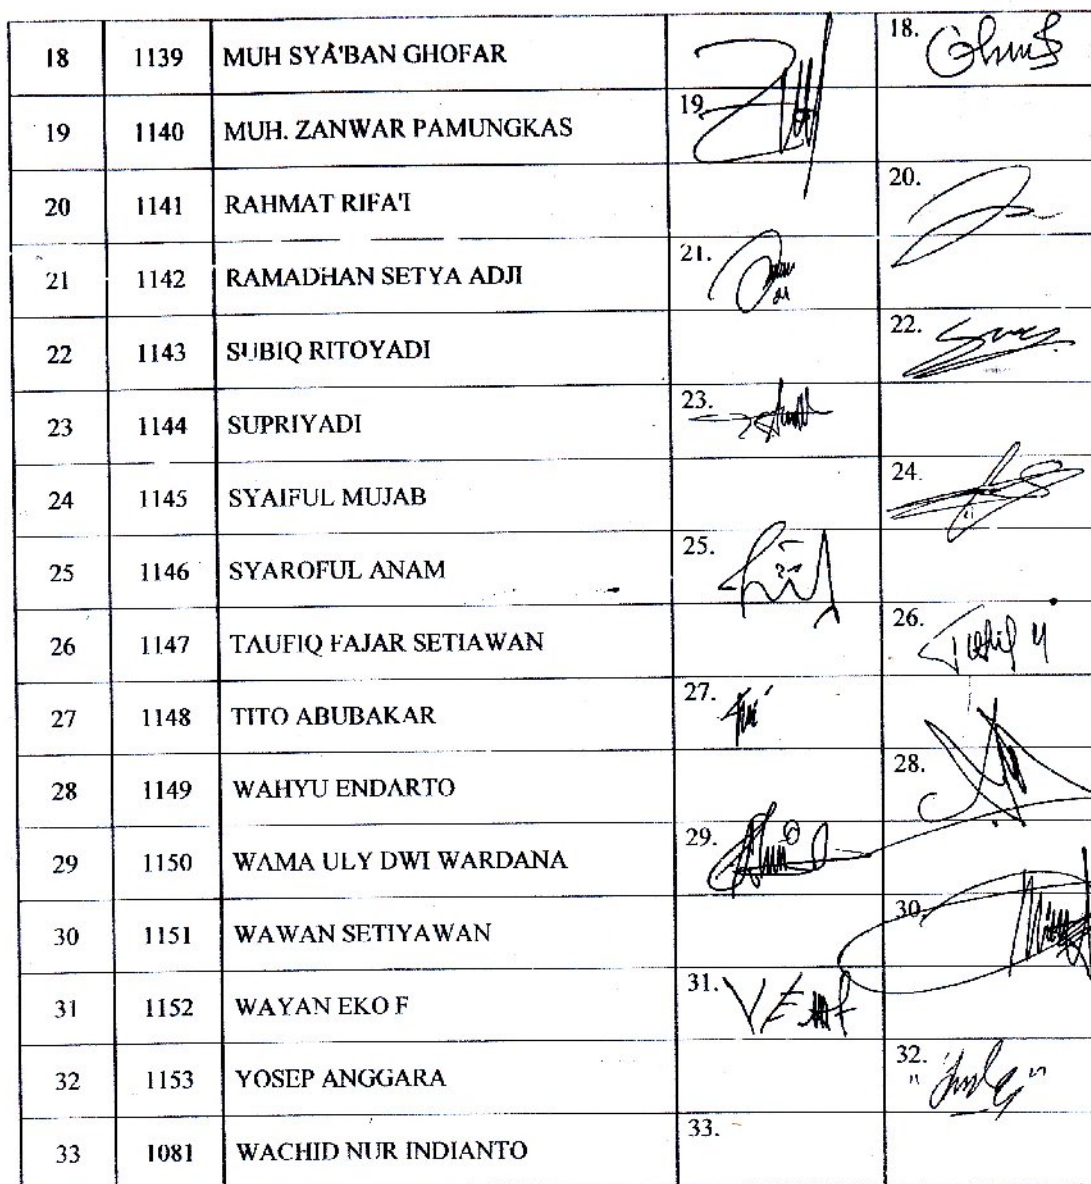 18 1139 MUH SYA'BAN GHOFAR 18.
19 1140 MUH. ZANWAR PAMUNGKAS 19.
20 1141 RAHMAT RIFA'I 20.
21 1142 RAMADHAN SETYA ADJI 21.
22 1143 SUBIQ RITOYADI 22.
23 1144 SUPRIYADI 23.
24 1145 SYAIFUL MUJAB 24.
25 1146 SYAROFUL ANAM 25.
26 1147 TAUFIQ FAJAR SETIAWAN 26.
27 1148 TITO ABUBAKAR 27.
28 1149 WAHYU ENDARTO 28.
29 1150 WAMA ULY DWI WARDANA 29.
30 1151 WAWAN SETIYAWAN 30.
31 1152 WAYAN EKO F 31.
32 1153 YOSEP ANGGARA 32.
33 1081 WACHID NUR INDIANTO 33.